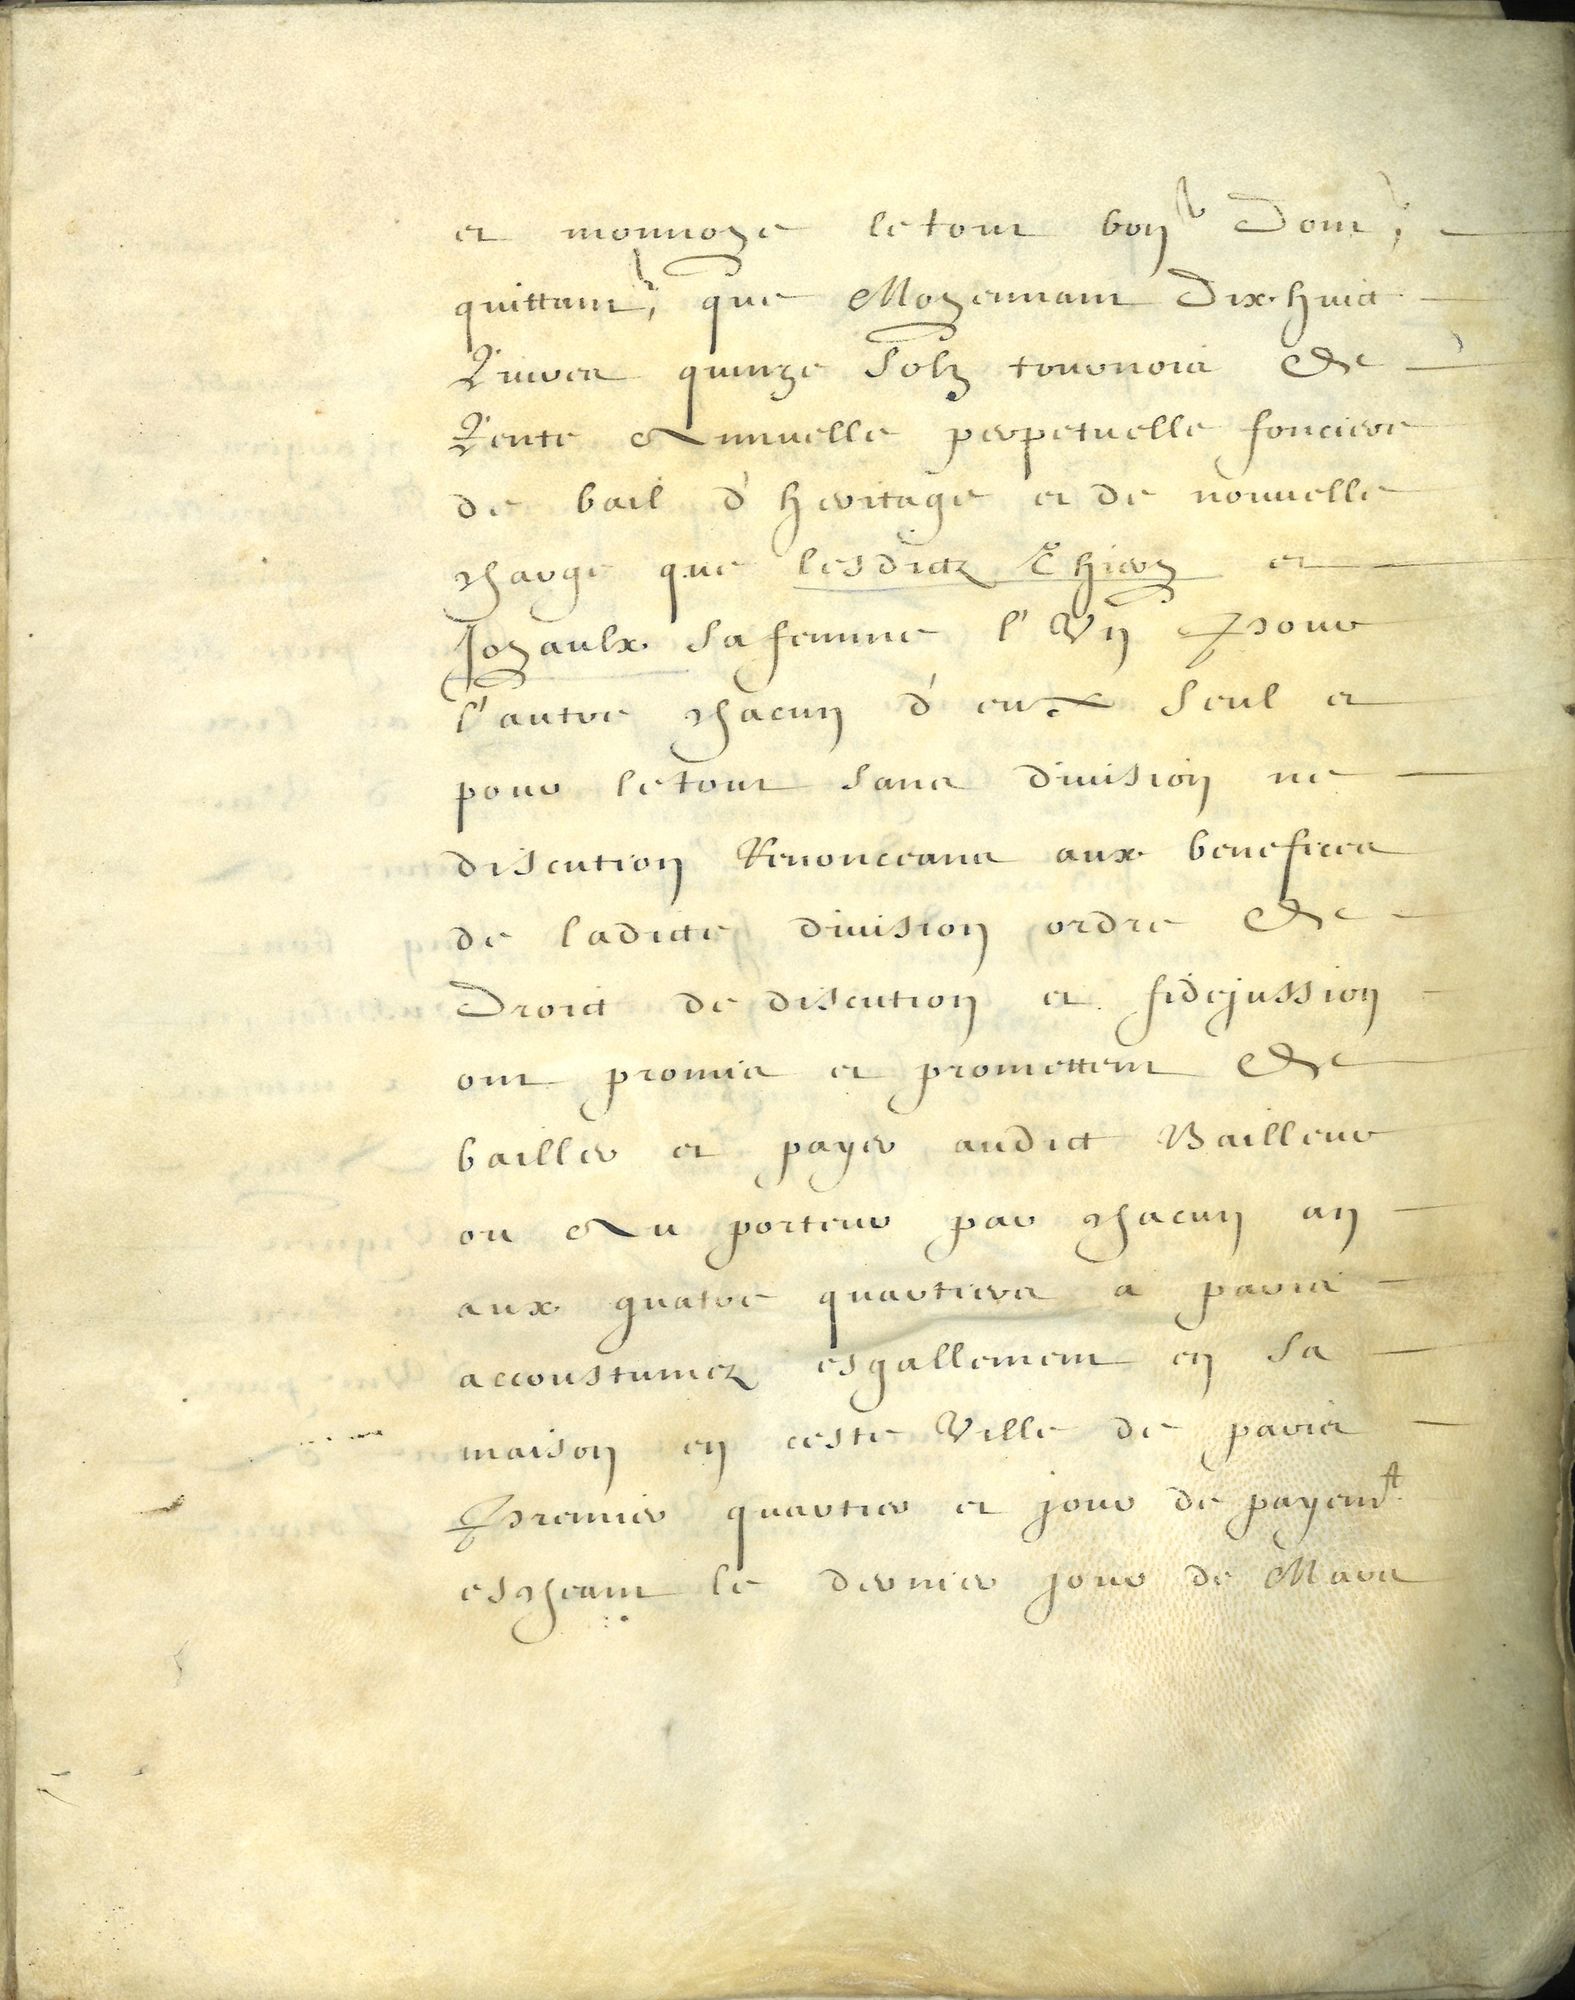 et monnoye le tout bon Dont,
quittant, que Moyennant Dix huict
Livres quinze Solz tournois De
Rente Annuelle perpetuelle fonciere
de bail d'heritage et de nouvelle
charge que lesdictz Thiery et
Joyaulx sa femme l'Un Pour
l'autre chacun d'eux Seul et
pour le tout Sans division ne
discution Renonceans aux benefices
de ladicte division ordre De
Droict de discution et fidejussion
ont promis et promettent De
bailler et payer audict Bailleur
ou Au porteur par chacun an
aux quatre quartiers a paris
accoustumez esgallement en Sa
maison en ceste Ville de paris
Premier quartier et jour de payemt
escheant le dernier jour de Mars